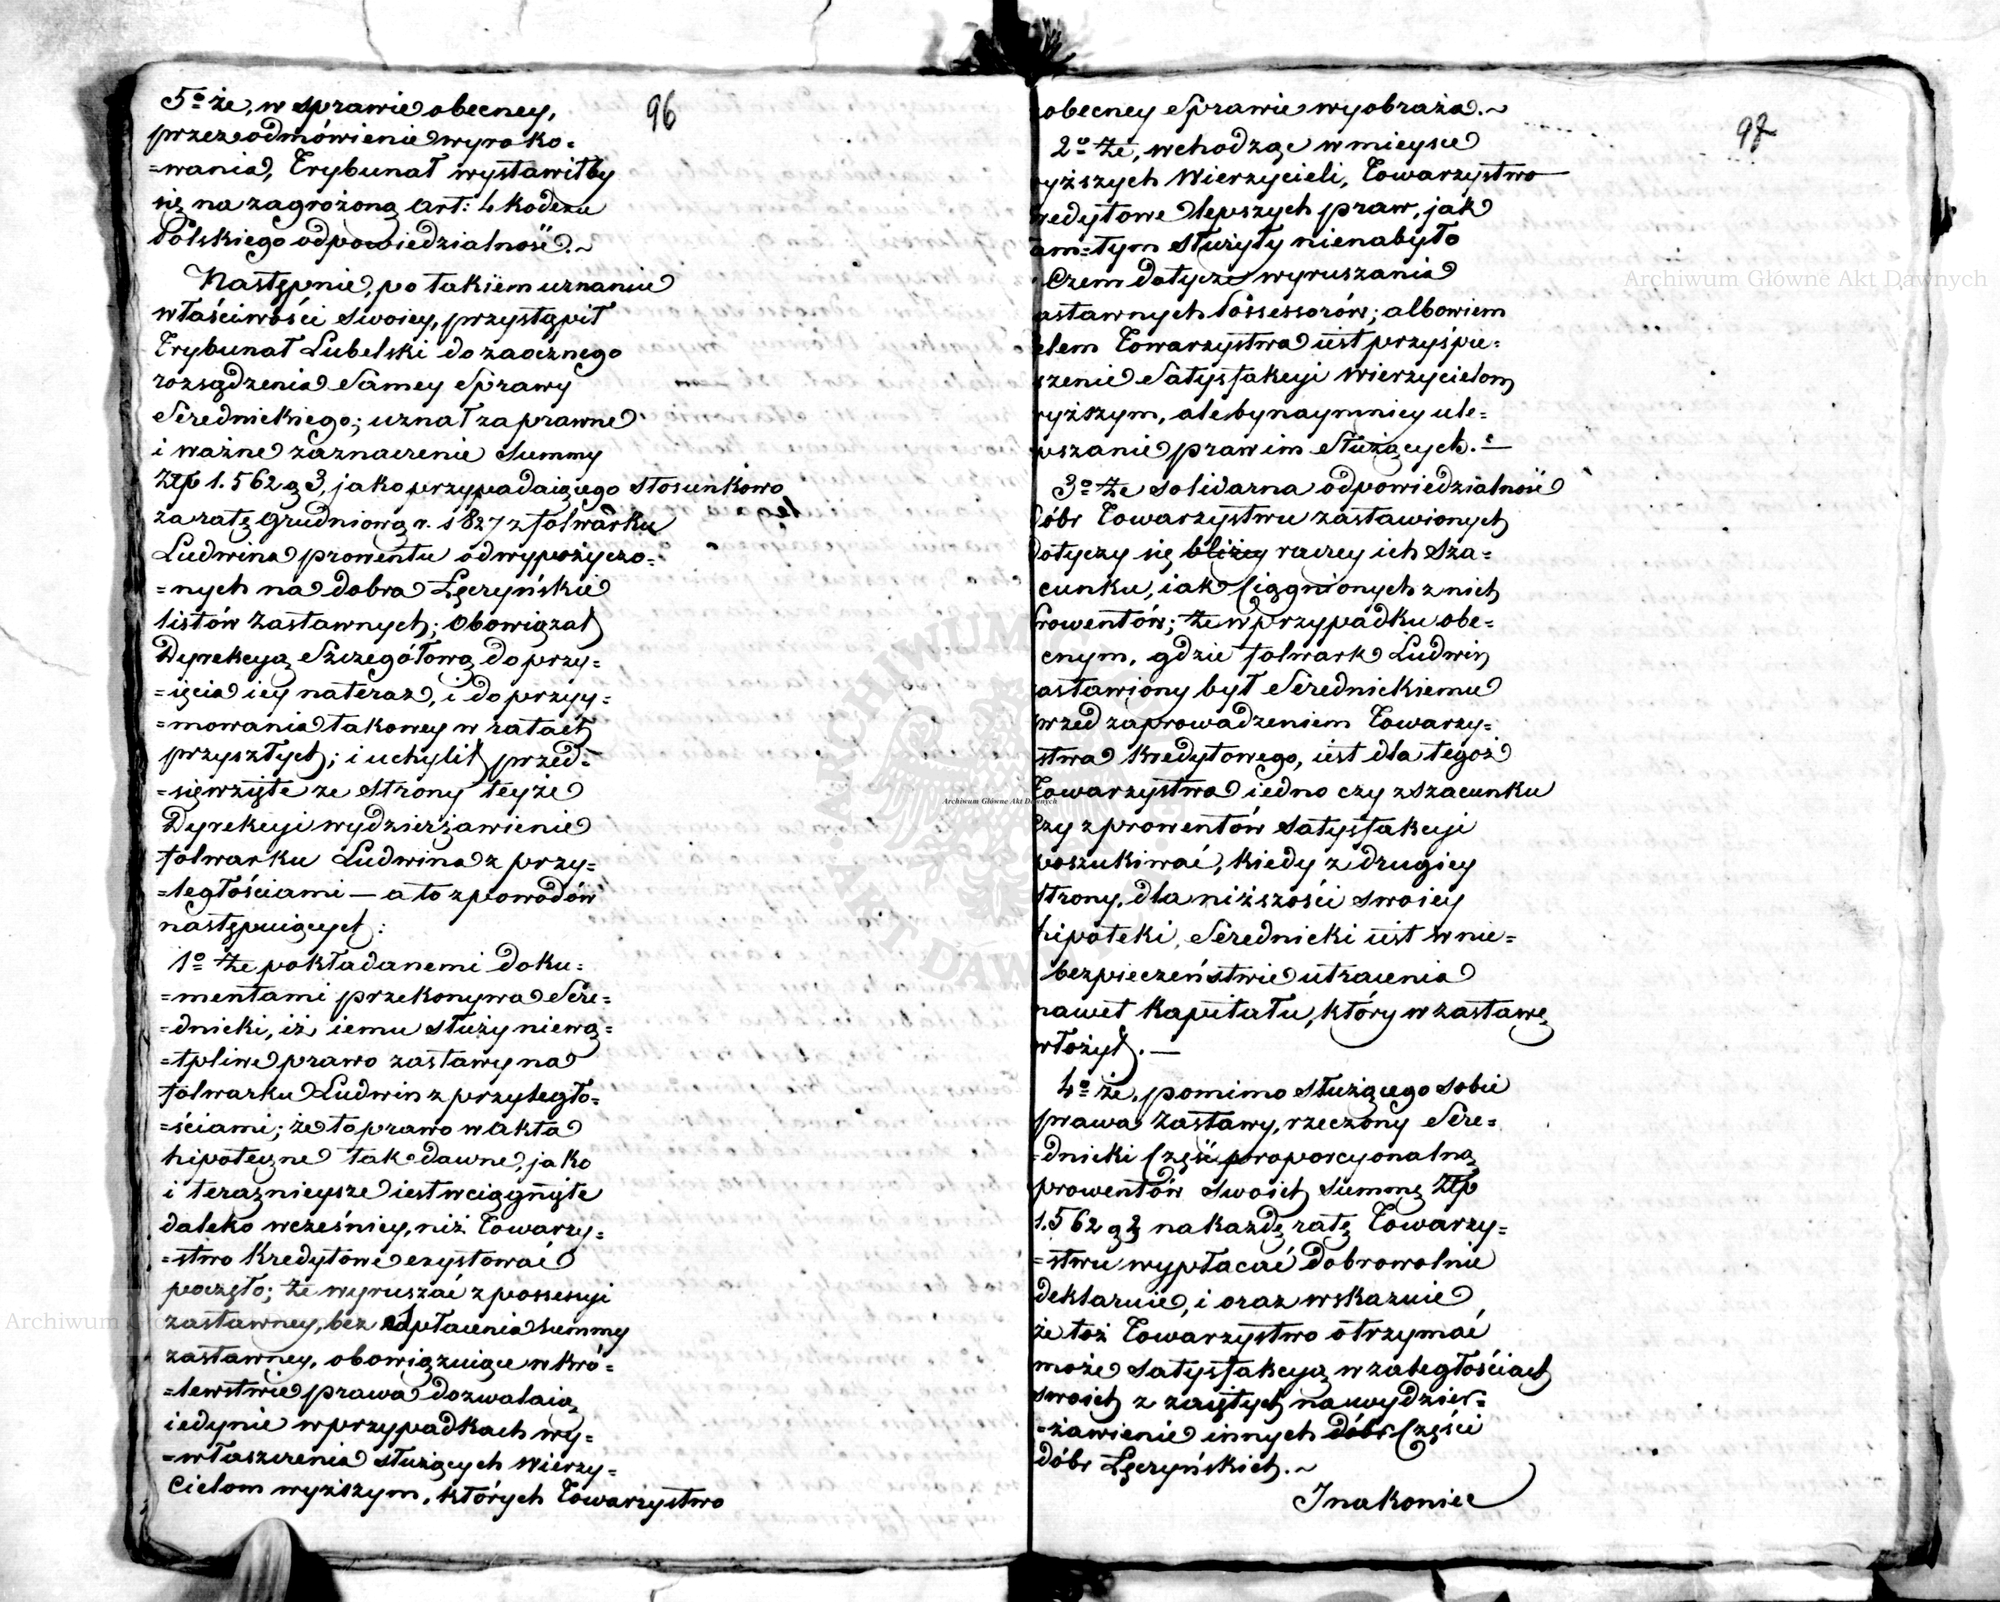 96
5º że, w sprawie obecney,
przez odmówienie wyroko=
=wania, Trybunał wystawiłby
się na zagrożoną art: 4 Kodexu
Polskiego odpowiedzialność.~
Następnie, po takiem uznaniu
właściwości swoiey, przystąpił
Trybunał Lubelski do zaocznego
rozsądzenia Samey Sprawy
Srednickiego; uznał za prawne
i ważne zaznaczenie Summy
Złp 1.562 g 3, jako przypadaiącego stosunkowo
za ratę Grudniową r. 1827 z folwarku
Ludwina prowentu od wypożyczo=
=nych na dobra Łęczyńskie
listów Zastawnych; Obowiązał
Dyrekcyą Szczegółową do przy=
=ięcia iey na teraz, i do przyy=
=mowania takowey w ratach
przyszłych; i uchylił przed=
=sięwzięte ze strony teyże
Dyrekcyi wydzierżawienie
folwarku Ludwina z przy=
=ległościami — a to z powodów
następuiących:
1º Że pokładanemi doku=
=mentami przekonywa Sre=
=dnicki, iż iemu służy niewą=
=tpliwe prawo zastawy na
folwarku Ludwin z przyległo=
=ściami; że to prawo w Akta
hipoteczne tak dawne, jako
i teraznieysze iest wciągnięte
daleko wcześniey, niż Towarzy=
=stwo Kredytowe exystować
poczęło; że wyruszać z possessyi
zastawney, bez odpłacenia Summy
zastawney, obowiązuiące w Kró=
=lewstwie prawa dozwalaią
iedynie w przypadkach wy=
=właszczenia służących Wierzy=
cielom wyższym, których Towarzystwo
97
obecney Sprawie wyobraża.~
2º Że, wchodząc w mieysce
yższych Wierzycieli, Towarzystwo
redytowe lepszych praw, jak
am=tym służyły nienabyło
Czem dotycze wyruszania
astawnych Possessorów; albowiem
elem Towarzystwa iest przyśpie=
szenie Satysfakcyi Wierzycielom
yższym, ale bynaymniey ule=
pszanie praw im służących.—
3º Że solidarna odpowiedzialność
dóbr Towarzystwu zastawionych
dotyczy się bliżey raczey ich Sza=
cunku, iak ciągnionych z nich
Prowentów; Że w przypadku obe=
cnym, gdzie folwark Ludwin
astawiony był Srednickiemu
przed zaprowadzeniem Towarzy=
stwa Kredytowego, iest dla tegoż
Towarzystwa iedno czy z szacunku
czy z prowentów Satysfakcyi
poszukiwać, kiedy z drugiey
strony, dla niższości swoiey
hipoteki, Srednicki iest w nie=
bezpieczeństwie utracenia
nawet Kapitału, który w zastawę
włożył.—
4º że, pomimo służącego sobie
prawa Zastawy, rzeczony Sre=
=dnicki Część proporcyonalną
prowentów swoich Summę Złp
1.562 g 3 na każdę ratę Towarzy=
=stwu wypłacać dobrowolnie
deklaruie, i oraz wskazuie,
że toż Towarzystwo otrzymać
może Satysfakcyą w zaległościach
swoich z zaiętych na wydzier=
=żawienie innych dóbr Części
dóbr Łęczyńskich.~
I nakoniec